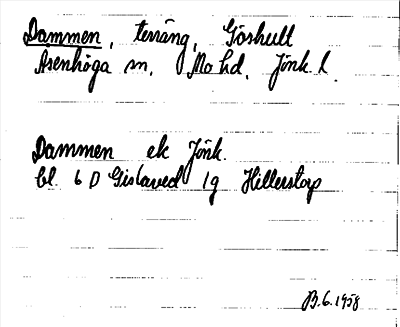 Dammen, terräng, Göshult
Åsenhöga sn, Mo hd, Jönk. l.
Dammen ek Jönk.
bl. 6 D Gislaved 1g Hillerstorp
B. 6. 1958